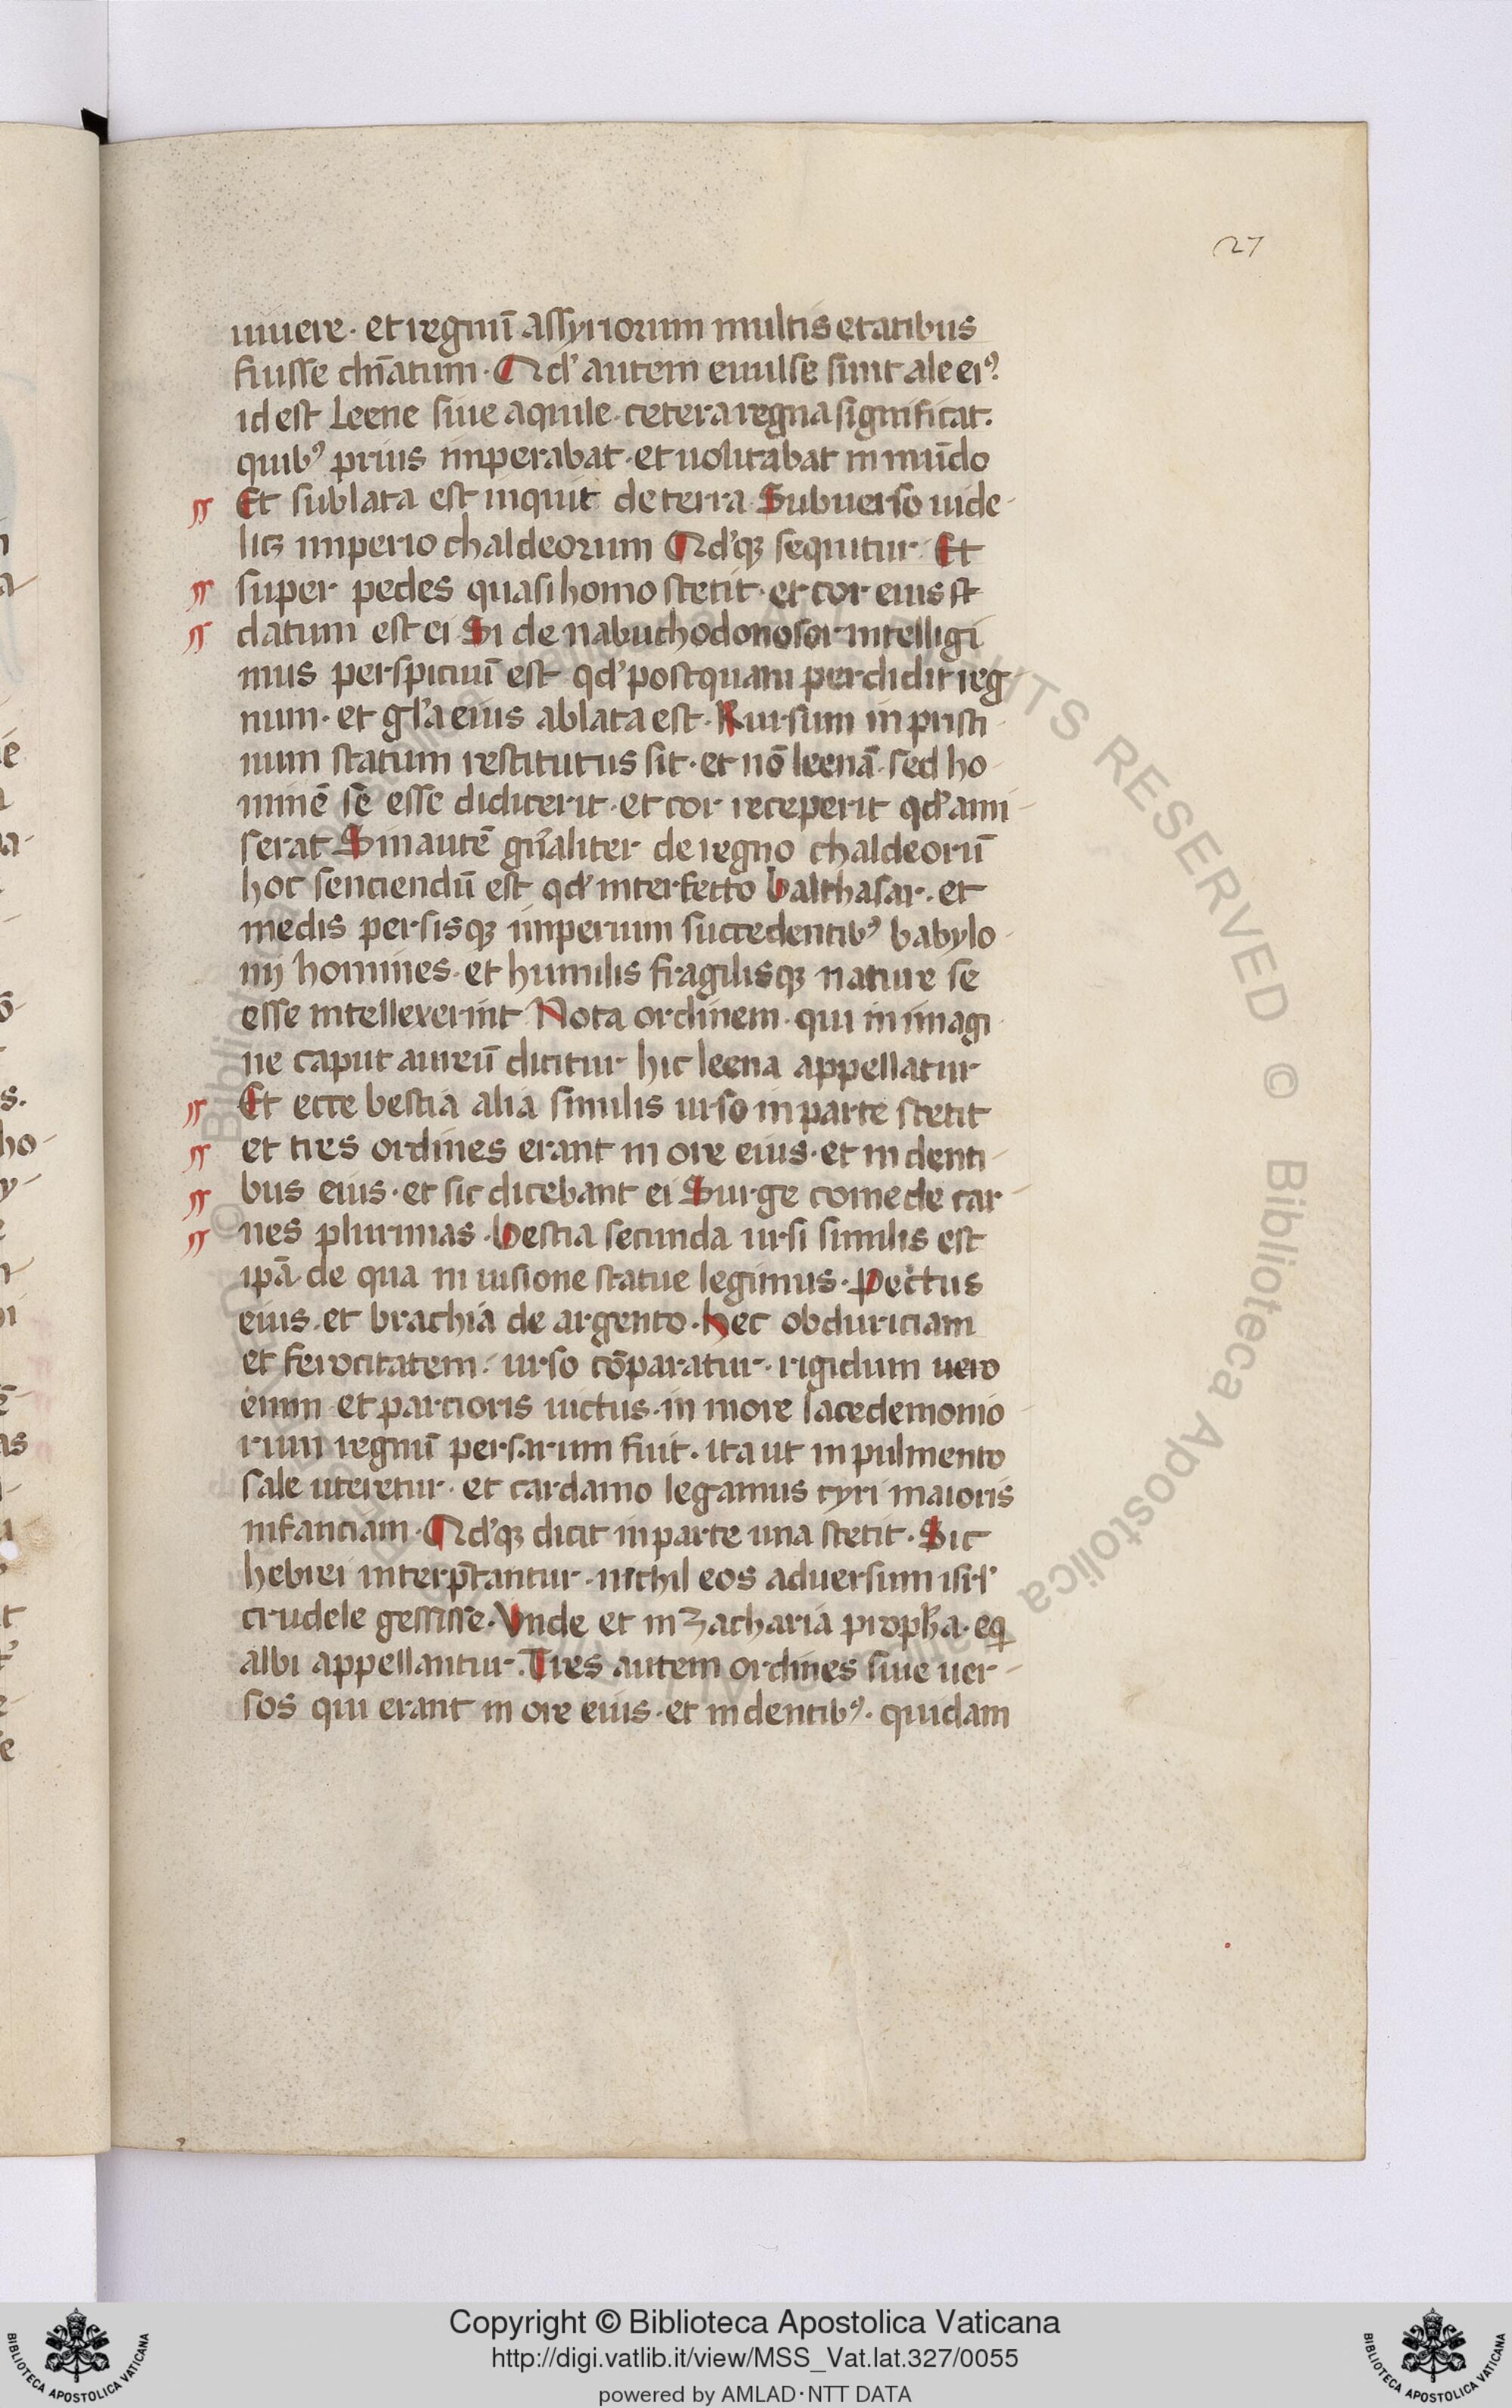 27
uiuere· et regnū assyriorum multis etatibus
fuisse dn̄atum· Qd' autem euulse sunt ale eiꝰ
id est Leene siue aquile· cetera regna significat·
quibꝰ prius imperabat· et uolitabat in mūdo
Et sublata est inquit de terra Subuerso uide-
licꝫ imperio chaldeorum Qd'qꝫ sequitur Et
super pedes quasi homo stetit· et cor eius st
datum est ei Si de nabuchodonosor intelligi
mus perspicuū est qd' postquam perdidit reg-
num· et gl'a eius ablata est· Rursum in pristi-
num statum restitutus sit· et nō leenā· sed ho-
minē sē esse didicerit· et cor receperit qd' ami-
serat Sin autē gn̄aliter de regno chaldeorū
hoc senciendū est qd' interfecto balthasar· et
medis persisqꝫ imperium succedentibꝰ babylo-
nij homines· et humilis fragilisqꝫ nature se
esse intellexerint Nota ordinem· qui in imagi-
ne caput aureū dicitur hic leena appellatur
Et ecce bestia alia similis urso in parte stetit
et tres ordines erant in ore eius· et in denti-
bus eius· et sic dicebant ei Surge comede car-
nes plurimas· bestia secunda ursi similis est
ipā de qua in uisione statue legimus· Pectus
eius· et brachia de argento· hec ob duriciam
et ferocitatem· urso cōparatur· rigidum uero
enim et parcioris uictus· in more lacedemonio-
rum regnū persarum fuit· ita ut in pulmento
sale uteretur· et cardamo legamus cyri maioris
infanciam· Qd'qꝫ dicit in parte una stetit· Sic
hebrei interp̄tantur· nichil eos aduersum isrl'
crudele gessisse· Vnde et in Zacharia proph'a· eq̄
albi appellantur· Tres autem ordines siue uer-
sos qui erant in ore eius· et in dentibꝰ· quidam
RIGHTS RESERVED © Biblioteca Apostolica
Copyright © Biblioteca Apostolica Vaticana
http://digi.vatlib.it/view/MSS_Vat.lat.327/0055
powered by AMLAD·NTT DATA
BIBLIOTECA APOSTOLICA VATICANA
BIBLIOTECA APOSTOLICA VATICANA